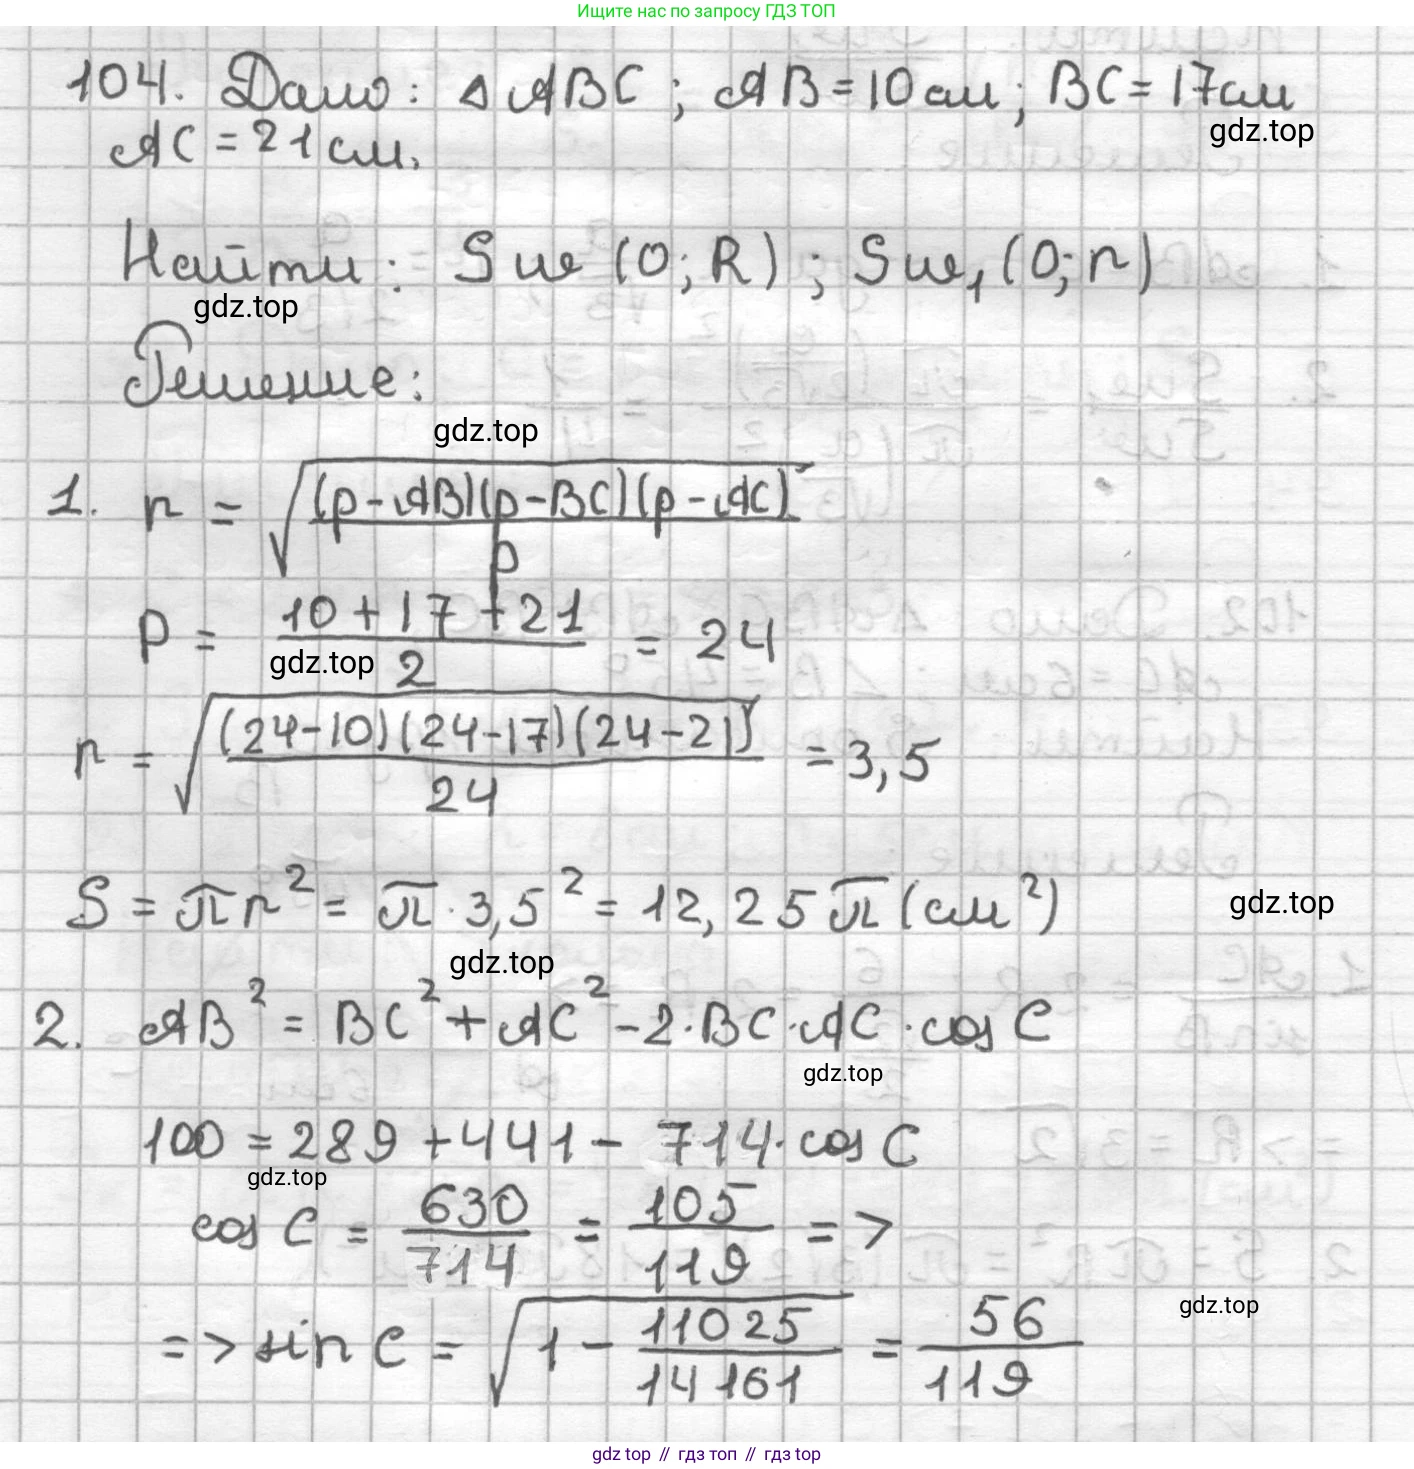 Ищите нас по запросу ГДЗ ТОП
104. Дано: △ ABC; AB = 10 см; BC = 17 см
gdz.top
AC = 21 см.
Найти: Sш (O; R); Sш₁ (O; r)
gdz.top
Решение:
gdz.top
1. r = √((p-AB)(p-BC)(p-AC)/p)
P = (10+17+21)/2 = 24
gdz.top
r = √((24-10)(24-17)(24-21)/24) = 3,5
S = πr² = π · 3,5² = 12,25π (см²)
gdz.top
gdz.top
2. AB² = BC² + AC² - 2·BC·AC·cos C
gdz.top
100 = 289 + 441 - 714·cos C
gdz.top
cos C = 630/714 = 105/119 =>
gdz.top
=> sin C = √(1 - 11025/14161) = 56/119
gdz top // гдз топ // gdz top